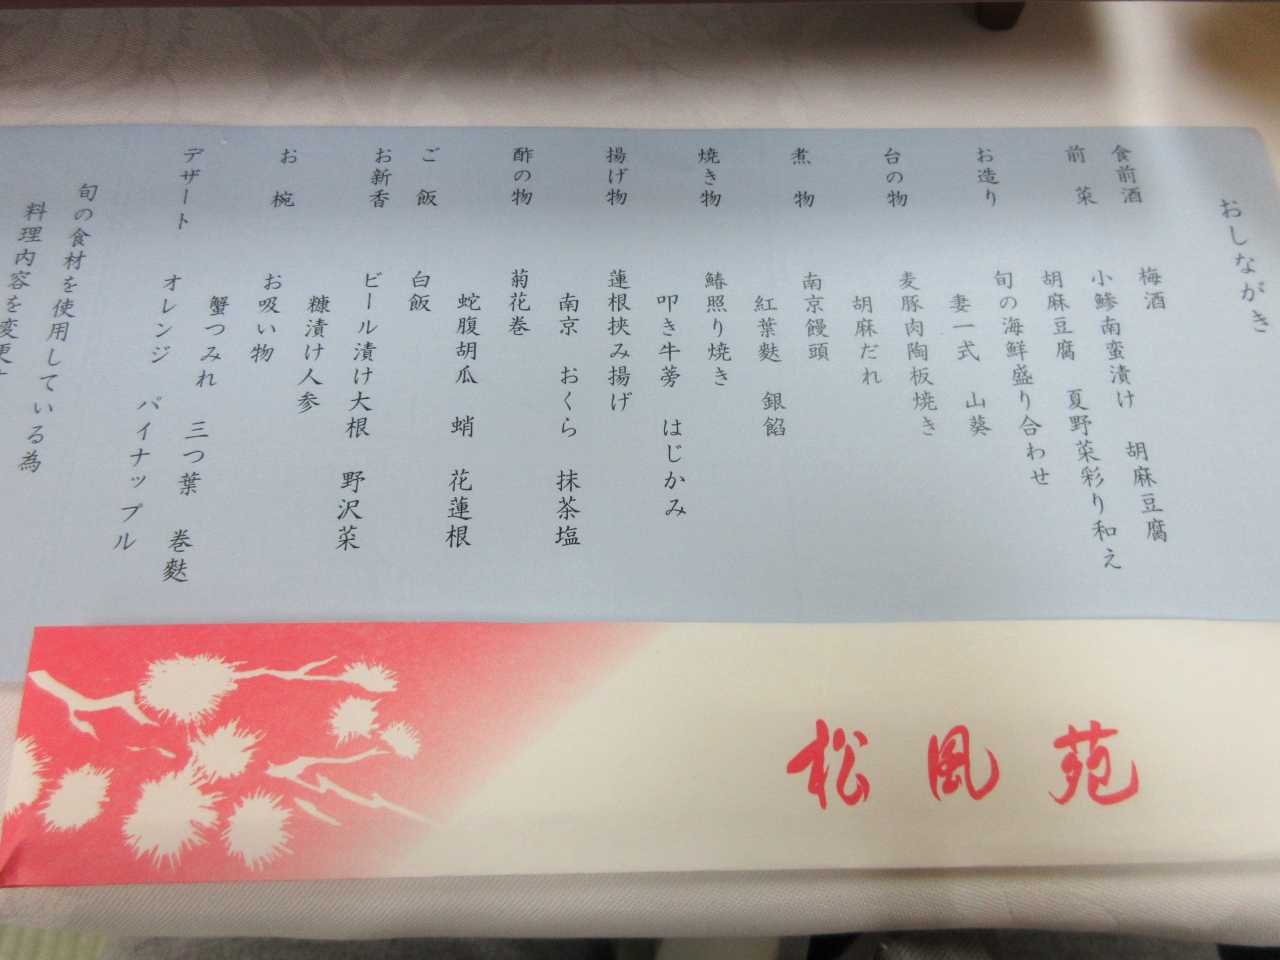 おしながき
食前酒 梅酒
前菜 小鯵南蛮漬け 胡麻豆腐
胡麻豆腐 夏野菜彩り和え
お造り 旬の海鮮盛り合わせ
妻一式 山葵
台の物 麦豚肉陶板焼き
胡麻だれ
煮物 南京饅頭
紅葉麩 銀餡
焼き物 鰆照り焼き
叩き牛蒡 はじかみ
揚げ物 蓮根挟み揚げ
南京 おくら 抹茶塩
酢の物 菊花巻
蛇腹胡瓜 蛸 花蓮根
ご飯 白飯
お新香 ビール漬け大根 野沢菜
糠漬け人参
お椀 お吸い物
蟹つみれ 三つ葉 巻麩
デザート オレンジ パイナップル
旬の食材を使用している為
料理内容を変更
松風苑